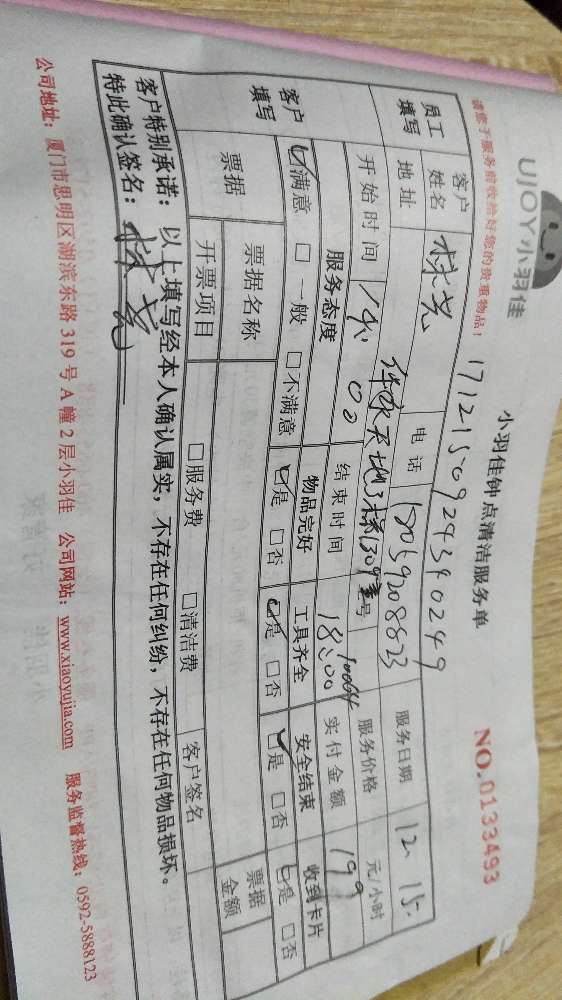 UJOY小羽佳
小羽佳钟点清洁服务单
NO.0133493
请您于服务前收拾好您的贵重物品！
1712150924340249
员工填写 客户姓名 电话 服务日期 12.15.
地址 3楼1309室号 服务价格 元/小时
开始时间 14:00 结束时间 18:00 实付金额 199
客户填写 服务态度 物品完好 工具齐全 安全结束 收到卡片
☑满意 □一般 □不满意 ☑是 □否 ☑是 □否 ☑是 □否 ☑是 □否
票据 票据名称 □服务费 □清洁费 客户签名 票据金额
开票项目
客户特别承诺：以上填写经本人确认属实，不存在任何纠纷，不存在任何物品损坏。
特此确认签名：
公司地址：厦门市思明区湖滨东路319号A幢2层小羽佳 公司网站：www.xiaoyujia.com 服务监督热线：0592-5888123